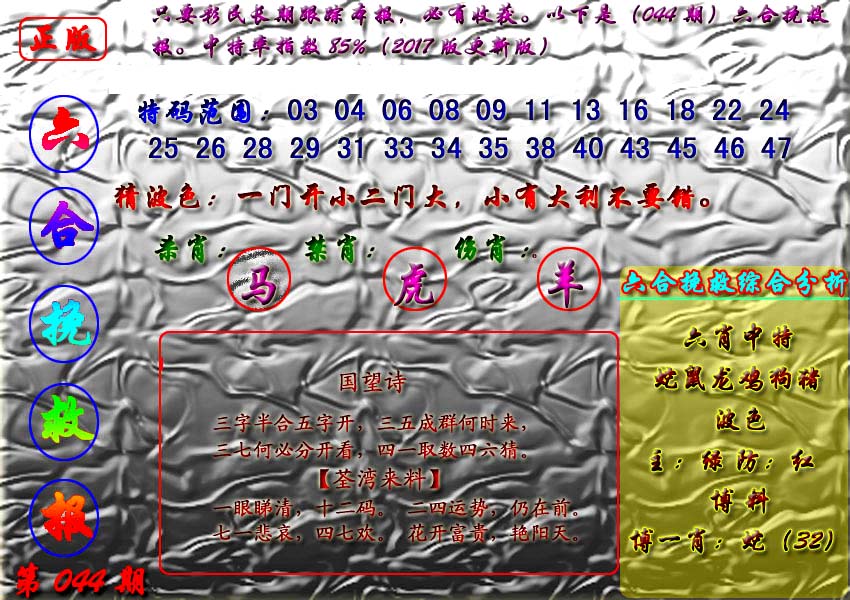 正版
只要彩民长期跟踪本报，必有收获。以下是（044期）六合挽救
报。中特率指数85%（2017版更新版）
六合挽救报
第044期
特码范围：03 04 06 08 09 11 13 16 18 22 24
25 26 28 29 31 33 34 35 38 40 43 45 46 47
猜波色：一门开小二门大，小有大利不要错。
杀肖：马 禁肖：虎 伤肖：羊
国望诗
三字半合五字开，三五成群何时来，
三七何必分开看，四一取数四六猜。
【荃湾来料】
一眼睇清，十二码。 二四运势，仍在前。
七一悲哀，四七欢。 花开富贵，艳阳天。
六合挽救综合分析
六肖中特
蛇鼠龙鸡狗猪
波色
主：绿防：红
博料
博一肖：蛇（32）